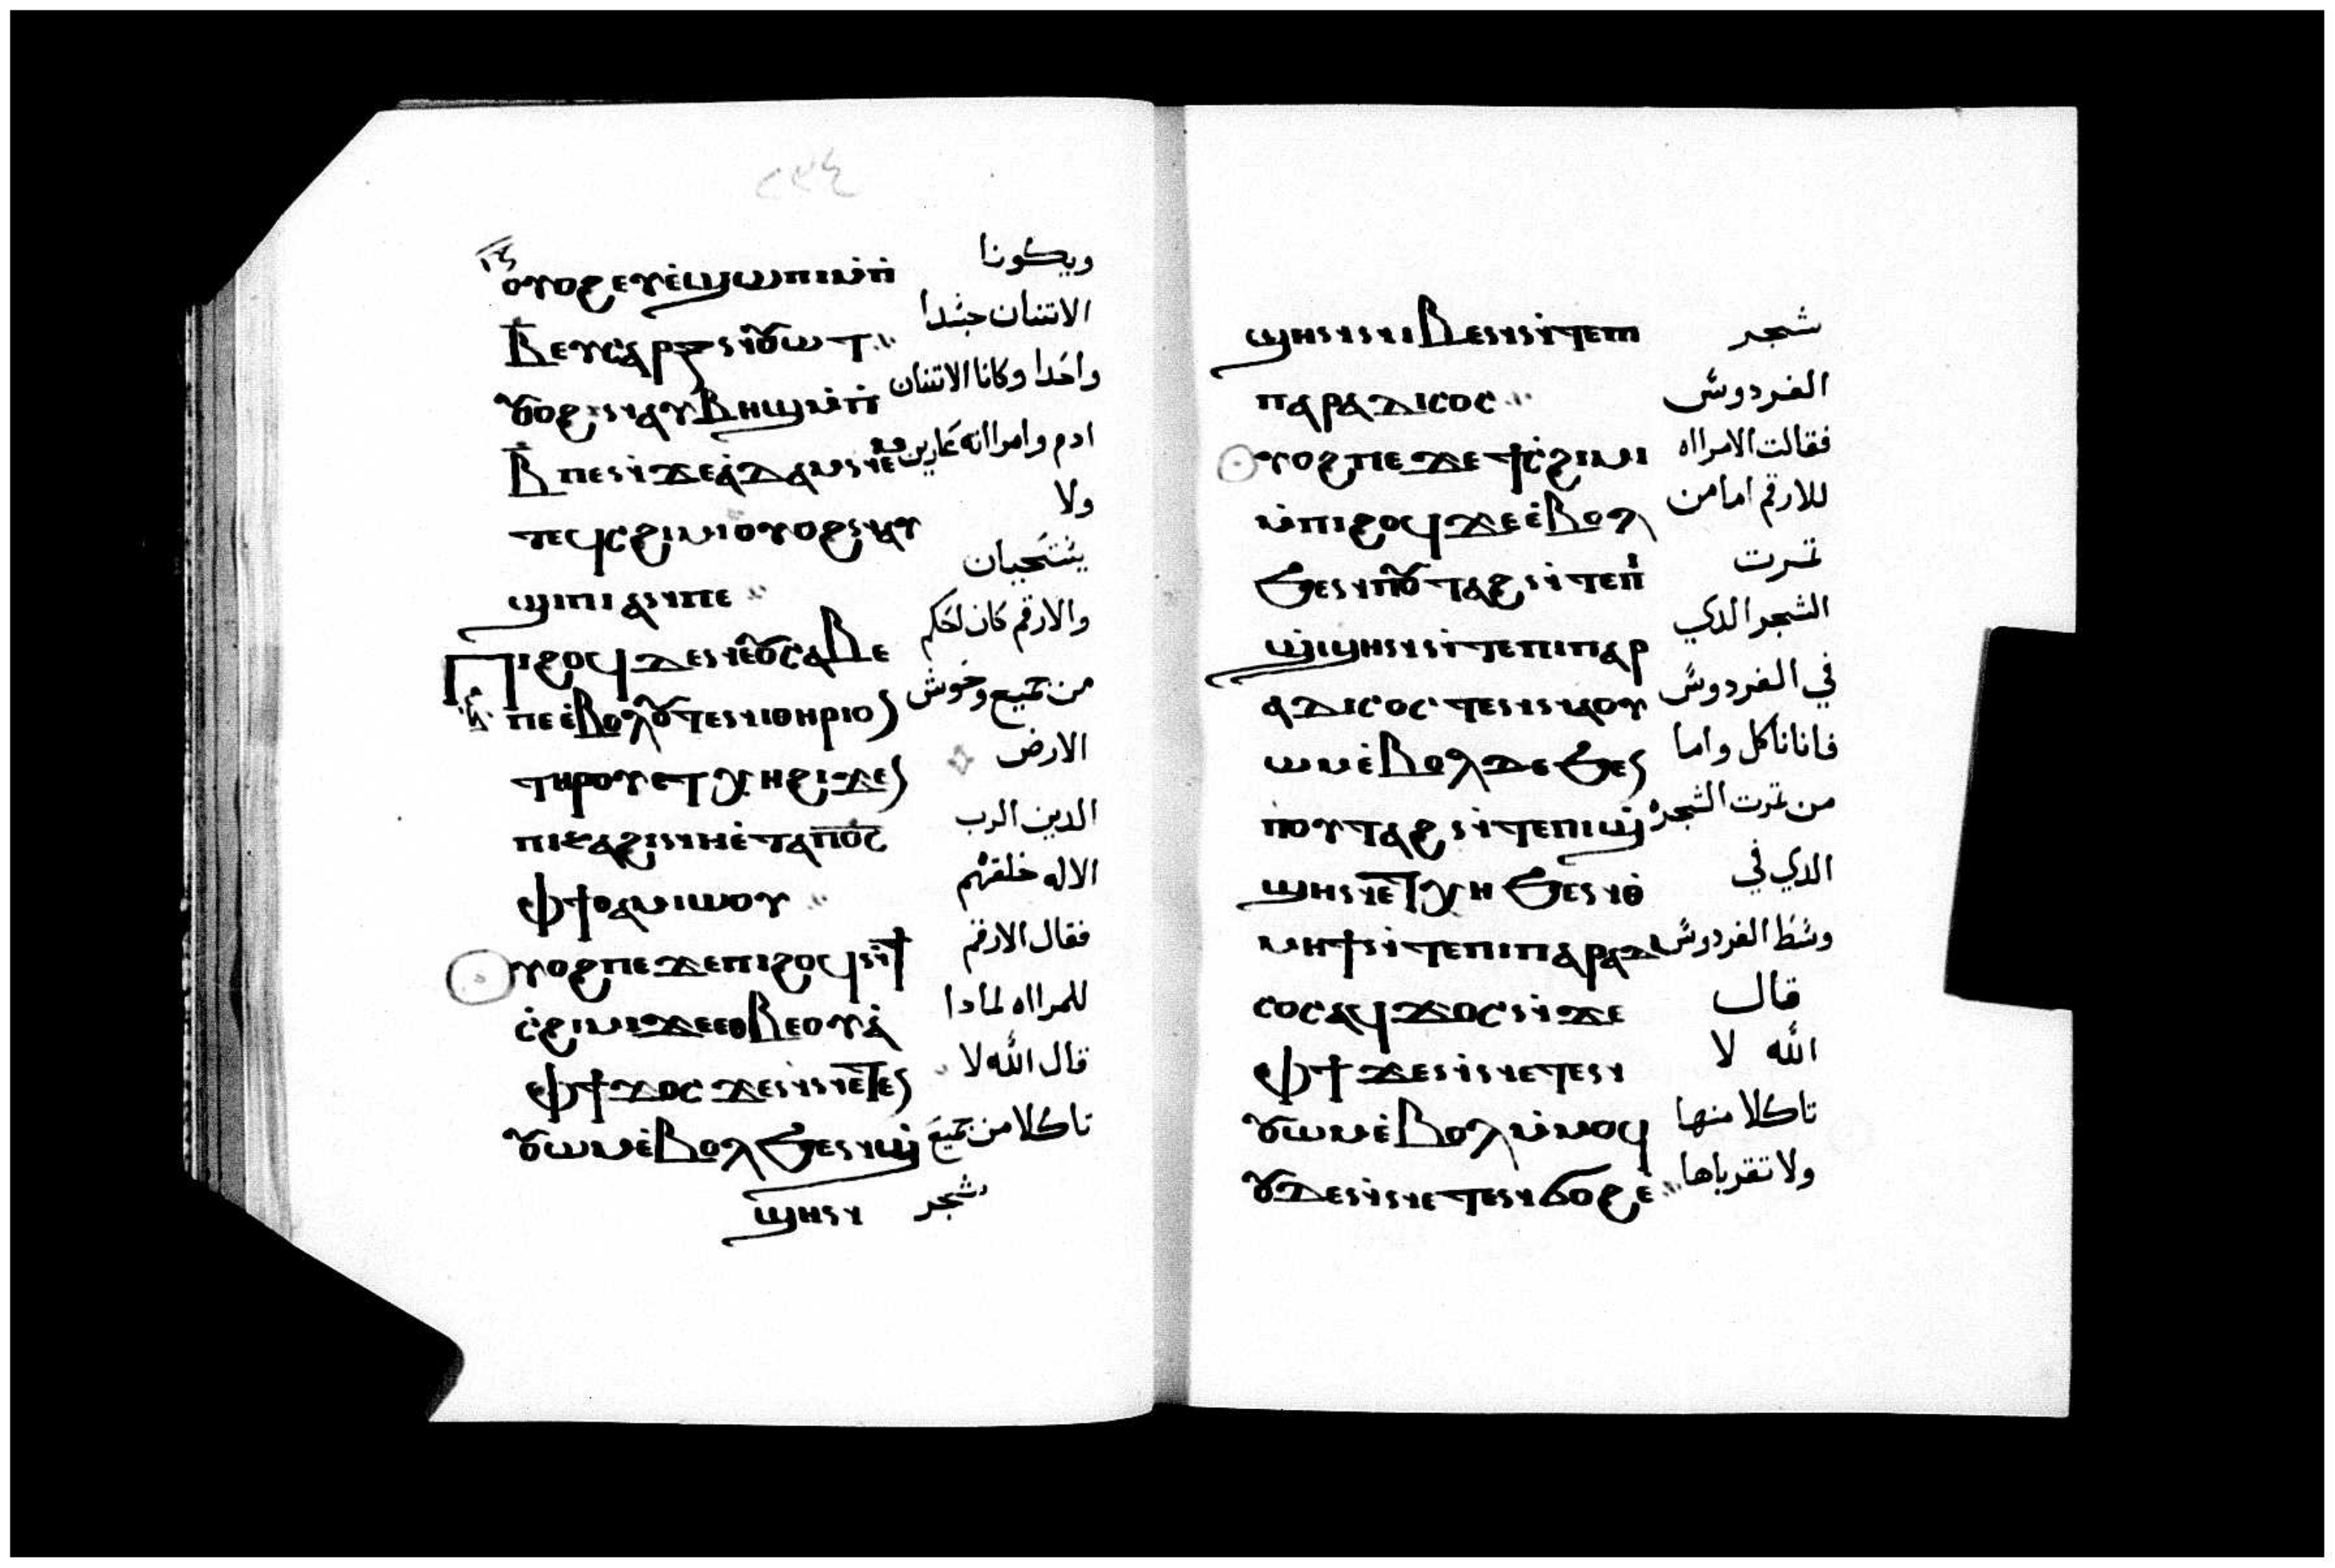 ⲟⲩⲟϩ ⲉⲩⲉ̀ϣⲱⲡⲓ ⲙ̀ⲡ̀ ويكونا
ⲃ̅ ⲉⲩⲥⲁⲣⲝ ⲛ̀ⲟⲩⲱⲧ الاتنان جسدا
ⲟⲩⲟϩ ⲛⲁⲩⲃⲏϣ ⲙ̀ⲡ̀ واحدا وكانا الاتنان
ⲃ̅ ⲡⲉ ⲛ̀ϫⲉ ⲁ̀ⲇⲁⲙ ⲛⲉⲙ ادم وامرااته عارين
ⲧⲉϥⲥϩⲓⲙⲓ ⲟⲩⲟϩ ⲛⲁⲩ ولا
ϣⲓⲡⲓ ⲁⲛ ⲡⲉ يستحيان
Ⲡⲓϩⲟϥ ⲇⲉ ⲛⲉ ⲟⲩⲥⲁⲃⲉ والارقم كان احكم
ⲡⲉ ⲉ̀ⲃⲟⲗ ⲟⲩⲧⲉ ⲛⲓⲑⲏⲣⲓⲟⲛ من جميع وحوش
ⲧⲏⲣⲟⲩ ⲉⲧⲭⲏ ϩⲓϫⲉⲛ الارض
ⲡⲓⲕⲁϩⲓ ⲛⲏ ⲉ̀ⲧⲁ ⲡ̅ⲟ̅ⲥ̅ الدين الرب
ⲫϯ ⲑⲁⲙⲓⲱⲟⲩ الاله خلقهم
ⲟⲩⲟϩ ⲡⲉϫⲉ ⲡⲓϩⲟϥ ⲛ̀ϯ فقال الارقم
ⲥ̀ϩⲓⲙⲓ ϫⲉ ⲉⲑⲃⲉ ⲟⲩ ⲁ̀ للمرااه لمادا
ⲫϯ ϫⲟⲥ ϫⲉ ⲛ̀ⲛⲉⲧⲉⲛ قال الله لا
ⲟⲩⲱⲙ ⲉ̀ⲃⲟⲗ ϧⲉⲛ ϣ̀ تاكلا من جميع
ϣⲏⲛ شجر
ϣⲏⲛ ⲛⲓⲃⲉⲛ ⲛ̀ⲧⲉ ⲡⲓ شجر
ⲡⲁⲣⲁⲇⲓⲥⲟⲥ الفردوس
ⲟⲩⲟϩ ⲡⲉϫⲉ ϯⲥ̀ϩⲓⲙⲓ فقالت الامرااه
ⲙ̀ⲡⲓϩⲟϥ ϫⲉ ⲉ̀ⲃⲟⲗ للارقم اما من
ϧⲉⲛ ⲡⲟⲩⲧⲁϩ ⲛ̀ⲧⲉ ⲡⲓ تمرت
ϣ̀ϣⲏⲛ ⲛ̀ⲧⲉ ⲡⲓⲡⲁⲣ الشجر الدي
ⲁⲇⲓⲥⲟⲥ ⲧⲉⲛⲛⲁⲟⲩ في الفردوس
ⲱⲙ ⲉ̀ⲃⲟⲗ ⲇⲉ ϧⲉⲛ فانا ناكل واما
ⲡⲟⲩⲧⲁϩ ⲛ̀ⲧⲉ ⲡⲓϣ̀ من تمرت الشجره
ϣⲏⲛ ⲉⲧⲭⲏ ϧⲉⲛ ⲑ̀ الدي في
ⲙⲏϯ ⲛ̀ⲧⲉ ⲡⲓⲡⲁⲣⲁⲇⲓ وسط الفردوس
ⲥⲟⲥ ⲁϥϫⲟⲥ ⲛ̀ϫⲉ قال
ⲫϯ ϫⲉ ⲛ̀ⲛⲉⲧⲉⲛ الله لا
ⲟⲩⲱⲙ ⲉ̀ⲃⲟⲗ ⲙ̀ⲙⲟϥ تاكلا منها
ⲟⲩⲇⲉ ⲛ̀ⲛⲉⲧⲉⲛϭⲟϩ ⲉ̀ ولا تقرباها